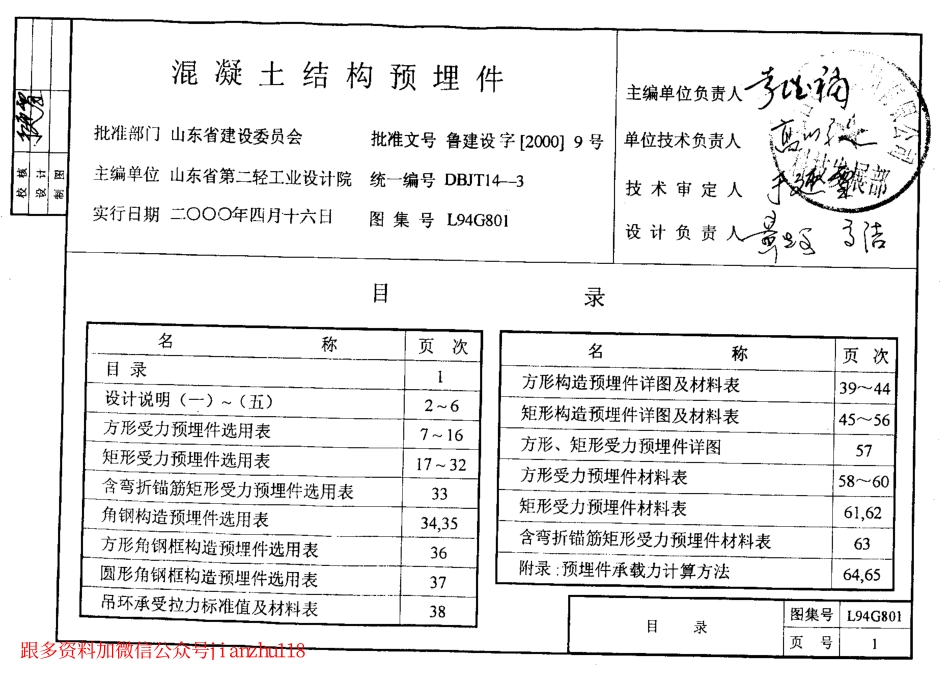 混凝土结构预埋件
批准部门 山东省建设委员会 批准文号 鲁建设字[2000] 9号
主编单位 山东省第二轻工业设计院 统一编号 DBJT14—3
实行日期 二〇〇〇年四月十六日 图集号 L94G801
主编单位负责人
单位技术负责人
技术审定人
设计负责人
校核
设计
制图
目 录
名 称 页 次
目 录 1
设计说明(一)~(五) 2~6
方形受力预埋件选用表 7~16
矩形受力预埋件选用表 17~32
含弯折锚筋矩形受力预埋件选用表 33
角钢构造预埋件选用表 34,35
方形角钢框构造预埋件选用表 36
圆形角钢框构造预埋件选用表 37
吊环承受拉力标准值及材料表 38
名 称 页 次
方形构造预埋件详图及材料表 39~44
矩形构造预埋件详图及材料表 45~56
方形、矩形受力预埋件详图 57
方形受力预埋件材料表 58~60
矩形受力预埋件材料表 61,62
含弯折锚筋矩形受力预埋件材料表 63
附录:预埋件承载力计算方法 64,65
目 录 图集号 L94G801
页 号 1
跟多资料加微信公众号jianzhu118